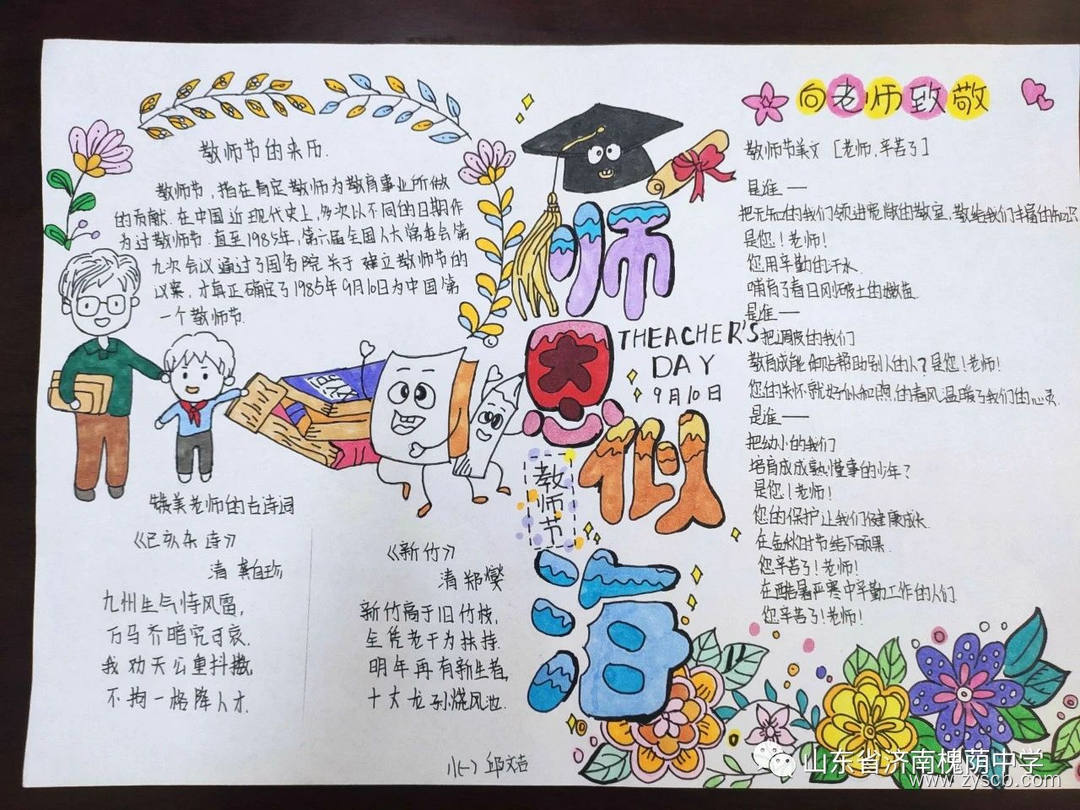 教师节的来历.
教师节，指在肯定教师为教育事业所做
的贡献.在中国近现代史上,多次以不同的日期作
为过教师节.直至1985年,第六届全国人大常委会第
九次会议通过了国务院关于建立教师节的
议案,才真正确定了1985年9月10日为中国第
一个教师节.
赞美老师的古诗词
《己亥杂诗》
清 龚自珍
九州生气恃风雷,
万马齐喑究可哀.
我劝天公重抖擞,
不拘一格降人才.
《新竹》
清 郑燮
新竹高于旧竹枝,
全凭老干为扶持.
明年再有新生者,
十丈龙孙绕凤池.
小(一) 邱文吉
师恩似海
THEACHER'S
DAY
9月10日
教师节
向老师致敬
教师节美文 [老师,辛苦了]
是谁一
把无知的我们领进宽敞的教室,教给我们丰富的知识
是您!老师!
您用辛勤的汗水
哺育了春日刚破土的嫩苗
是谁一
把调皮的我们
教育成能帮助别人的人?是您!老师!
您的关怀就好似和煦的春风温暖了我们的心灵.
是谁一
把幼小的我们
培育成成熟懂事的少年?
是您!老师!
您的保护让我们健康成长
在金秋时节结下硕果.
您辛苦了!老师!
在酷暑严寒中辛勤工作的人们
您辛苦了!老师!
山东省济南槐荫中学
www.zyscb.com